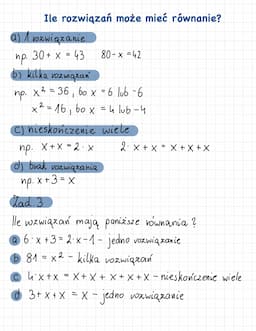 Ile rozwiązań może mieć równanie?
a) 1 rozwiązanie
np. 30 + x = 43   80 - x = 42
b) kilka rozwiązań
np. x² = 36, bo x = 6 lub -6
x² = 16, bo x = 4 lub -4
c) nieskończenie wiele
np. x + x = 2·x   2·x + x = x + x + x
d) brak rozwiązania
np. x + 3 = x
Zad. 3
Ile rozwiązań mają poniższe równania?
a 6·x + 3 = 2·x - 1 - jedno rozwiązanie
b 81 = x² - kilka rozwiązań
c 4·x + x = x + x + x + x + x - nieskończenie wiele
d 3 + x + x = x - jedno rozwiązanie